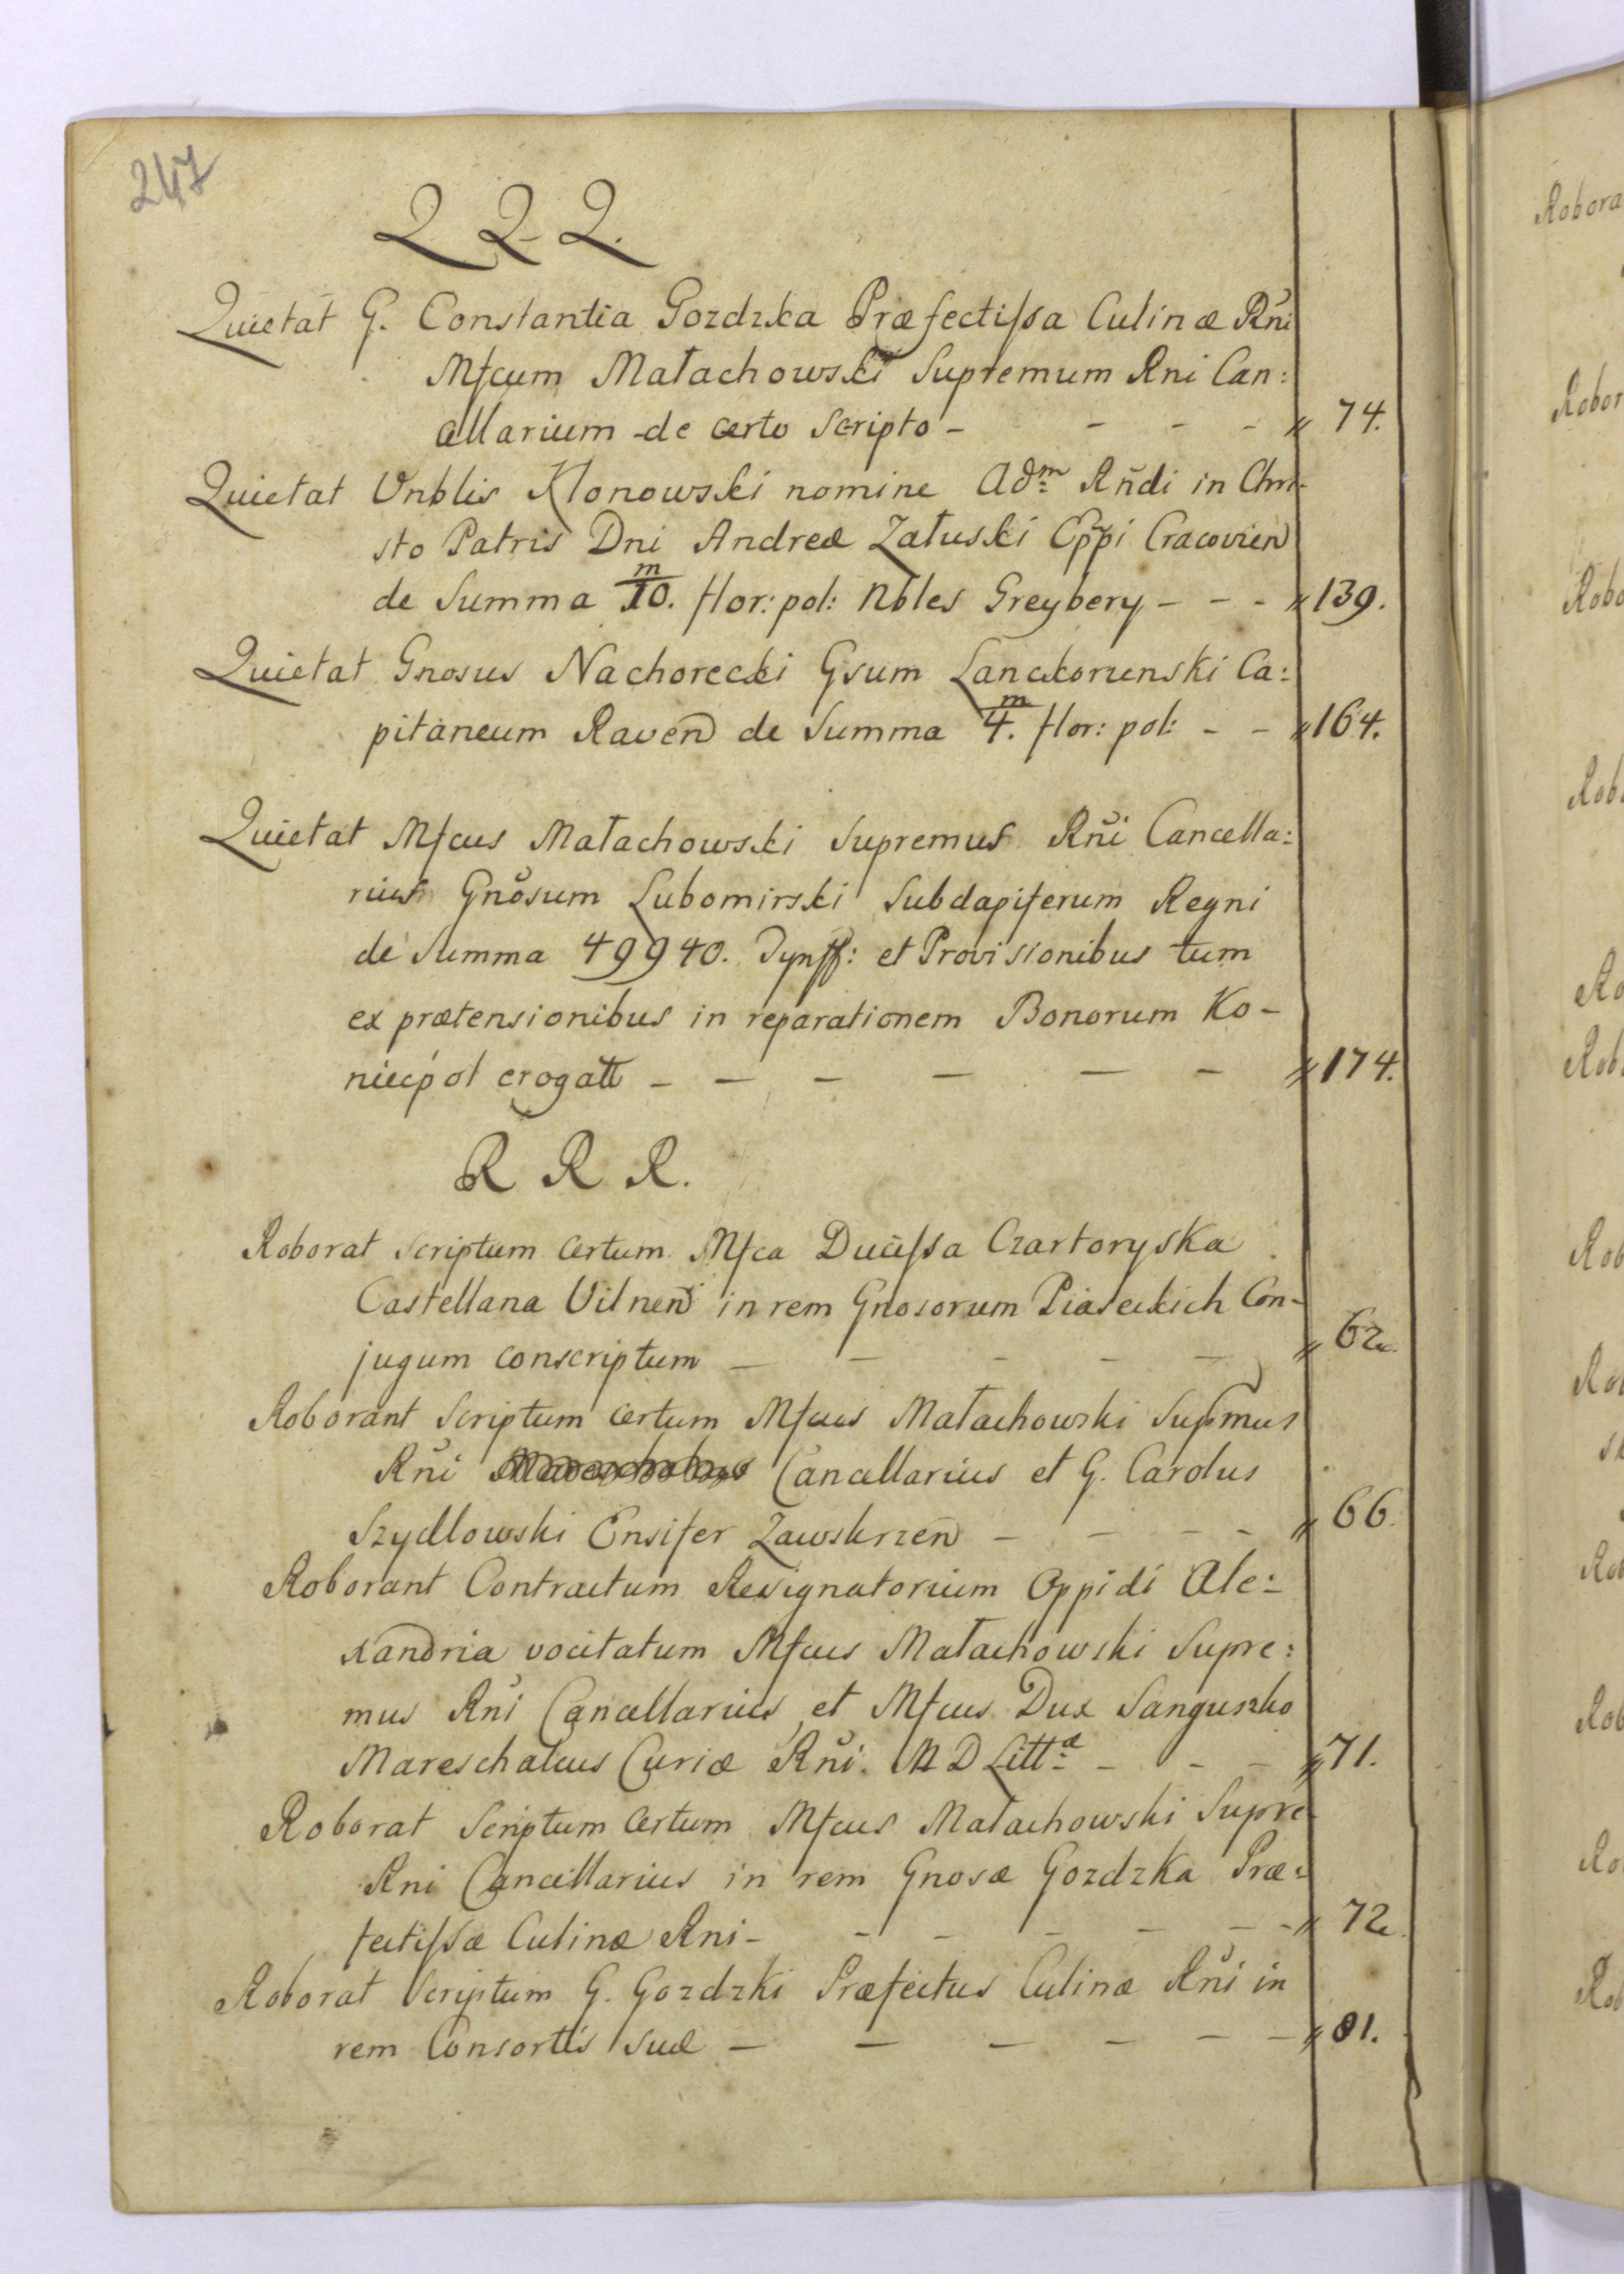 247
Q Q Q.
Quietat G. Constantia Gozdzka Præfectissa Culinæ Rñi
Mfcum Małachowski Supremum Rni Can:
cellarium de certo Scripto - - - - " 74.
Quietat Vnblis Klonowski nomine Adm Rñdi in Chri-
sto Patris Dni Andreæ Załuski Eppi Cracovien
de Summa 10.m flor: pol: Nbles Greybery - - - " 139.
Quietat Gnosus Nachorecki Gsum Lanckorunski Ca:
pitaneum Raven de Summa 4.m flor: pol: - - " 164.
Quietat Mfcus Małachowski Supremus Rñi Cancella:
rius Gnosum Lubomirski Subdapiferum Regni
de Summa 49940. Tynff: et Provisionibus tum
ex prætensionibus in reparationem Bonorum Ko-
niecpol erogatt - - - - - - " 174.
R R R.
Roborat scriptum certum Mfca Ducissa Czartoryska
Castellana Vilnen in rem Gnosorum Piaseckich Con-
jugum conscriptum - - - - - " 62.
Roborant Scriptum certum Mfcus Małachowski Supmus
Rñi Cancellarius et G. Carolus
Szydlowski Ensifer Zawskrzen - - - - " 66.
Roborant Contractum Resignatorium Oppidi Ale:
xandria vocitatum Mfcus Małachowski Supre:
mus Rñi Cancellarius et Mfcus Dux Sanguszko
Mareschalcus Curiæ Rñi. M D Littæ - - - " 71.
Roborat Scriptum certum Mfcus Małachowski Supre
Rni Cancellarius in rem Gnosæ Gozdzka Præ:
fectissæ Culinæ Rni - - - - - - - " 72.
Roborat Scriptum G. Gozdzki Præfectus Culinæ Rñi in
rem Consortis suæ - - - - - - " 81.